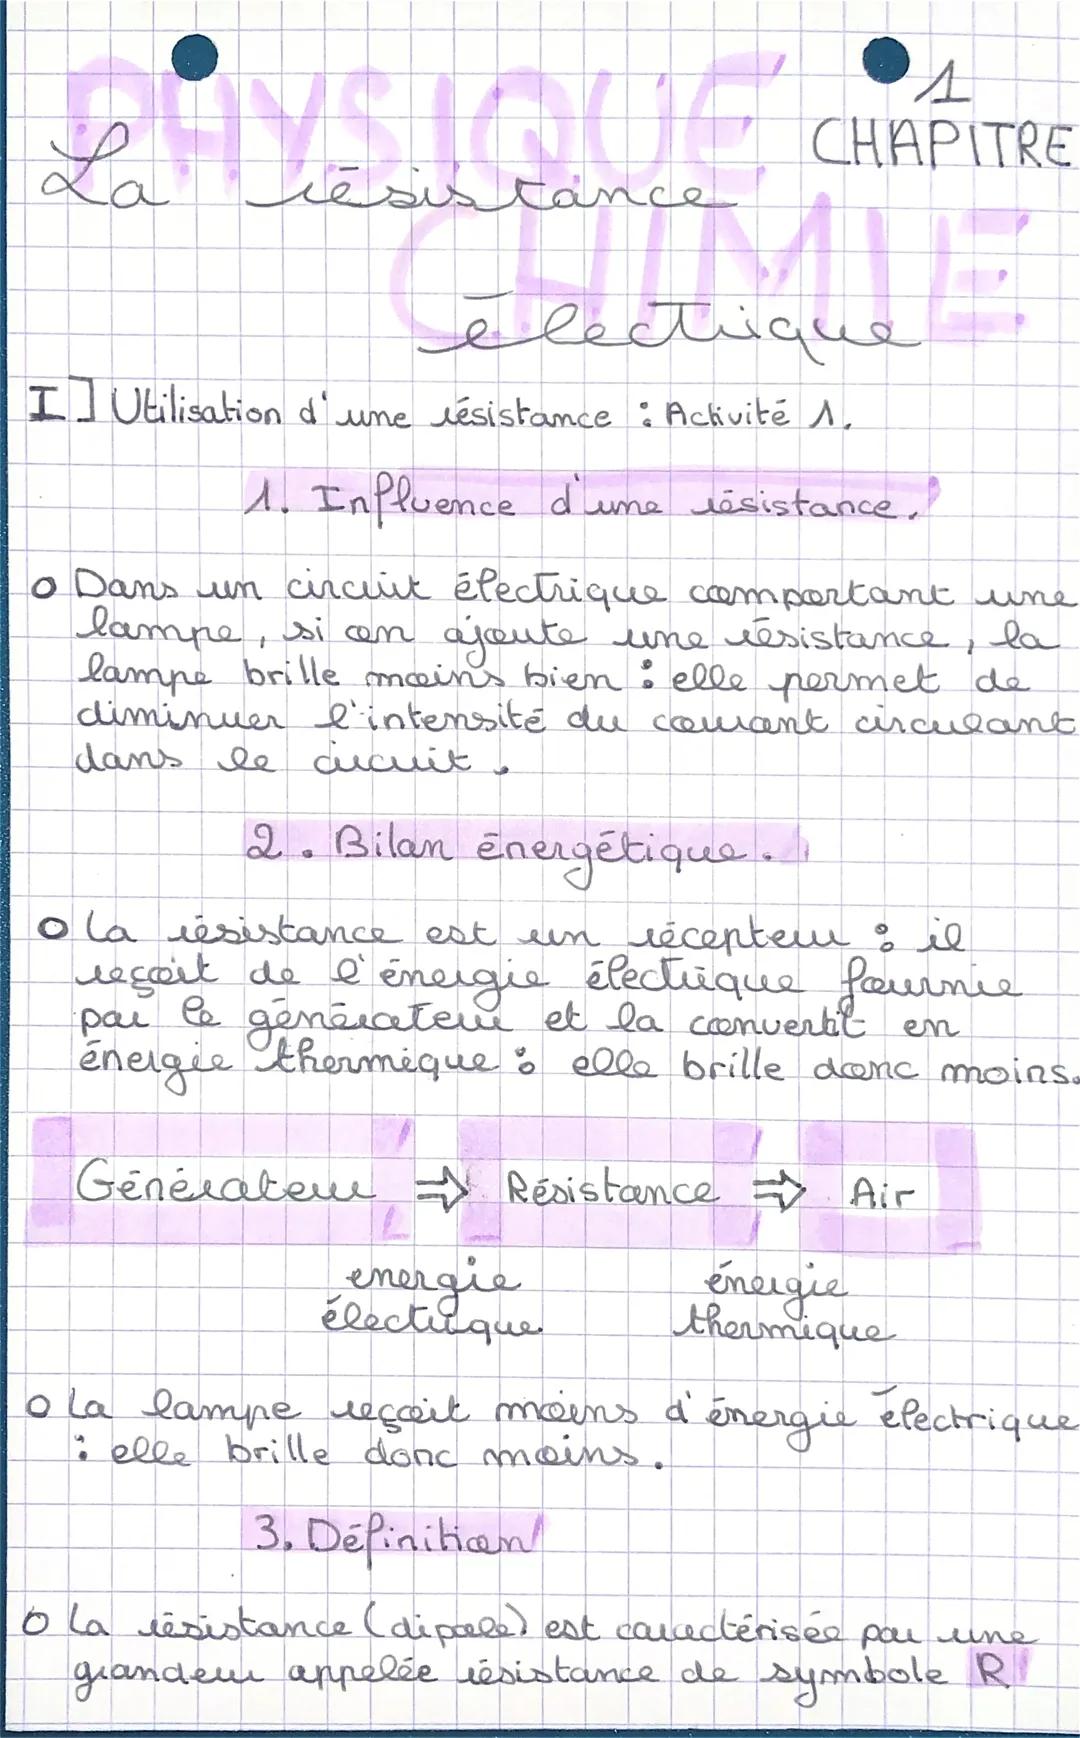 PHYSIQUE
CHIMIE
1
CHAPITRE
La résistance
électrique
I] Utilisation d'une résistance : Activité 1.
1. Influence d'une résistance.
o Dans un circuit électrique comportant une
lampe, si on ajoute une résistance, la
lampe brille moins bien : elle permet de
diminuer l'intensité du courant circulant
dans le circuit.
2. Bilan énergétique.
o La résistance est un récepteur : il
reçoit de l'énergie électrique fournie
par le générateur et la convertit en
énergie thermique : elle brille donc moins.
Générateur ⇒ Résistance ⇒ Air
energie énergie
électrique thermique
o La lampe reçoit moins d'énergie électrique
: elle brille donc moins.
3. Définition
o La résistance (dipole) est caractérisée par une
grandeur appelée résistance de symbole R